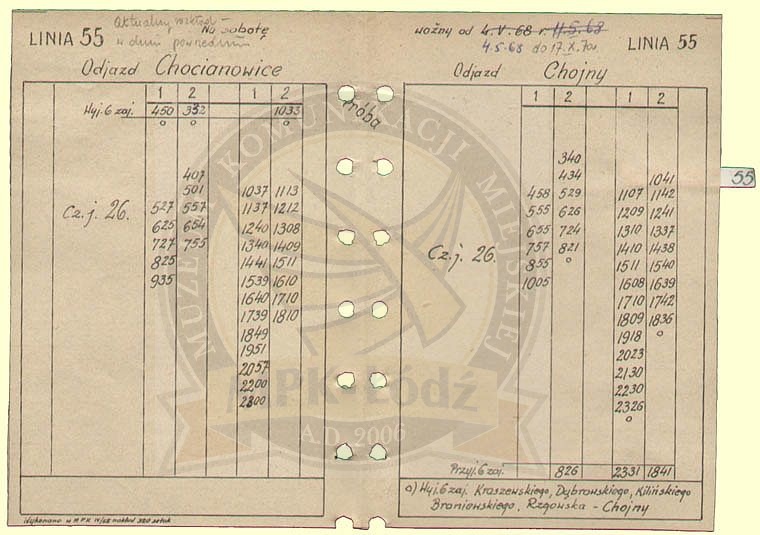 Aktualny rozkład -
w dniu powszednim
Na sobotę
LINIA 55
ważny od 4.V.68 r. 11.5.68
4.5.68 do 17.X.70r.
LINIA 55
Odjazd Chocianowice
Odjazd Chojny
1 2 1 2
Wyj. 6 zaj. 450 352 1033
o o o
407
501 1037 1113
527 557 1137 1212
625 654 1240 1308
727 755 1340 1409
825 1441 1511
935 1539 1610
1640 1710
1739 1810
1849
1951
2057
2200
2300
Cz. j. 26.
próba
1 2 1 2
340
434 1041
458 529 1107 1142
555 626 1209 1241
655 724 1310 1337
757 821 1410 1438
855 o 1511 1540
1005 1608 1639
1710 1742
1809 1836
1918 o
2023
2130
2230
2326
o
Cz. j. 26.
Przyj. 6 zaj. 826 2331 1841
o) Wyj. 6 zaj. Kraszewskiego, Dąbrowskiego, Kilińskiego
Braniewskiego, Rzgowska - Chojny
Wykonano w MPK IV/68 nakład 320 sztuk
55
MUZEUM KOMUNIKACJI MIEJSKIEJ
MPK-Łódź
A.D. 2006